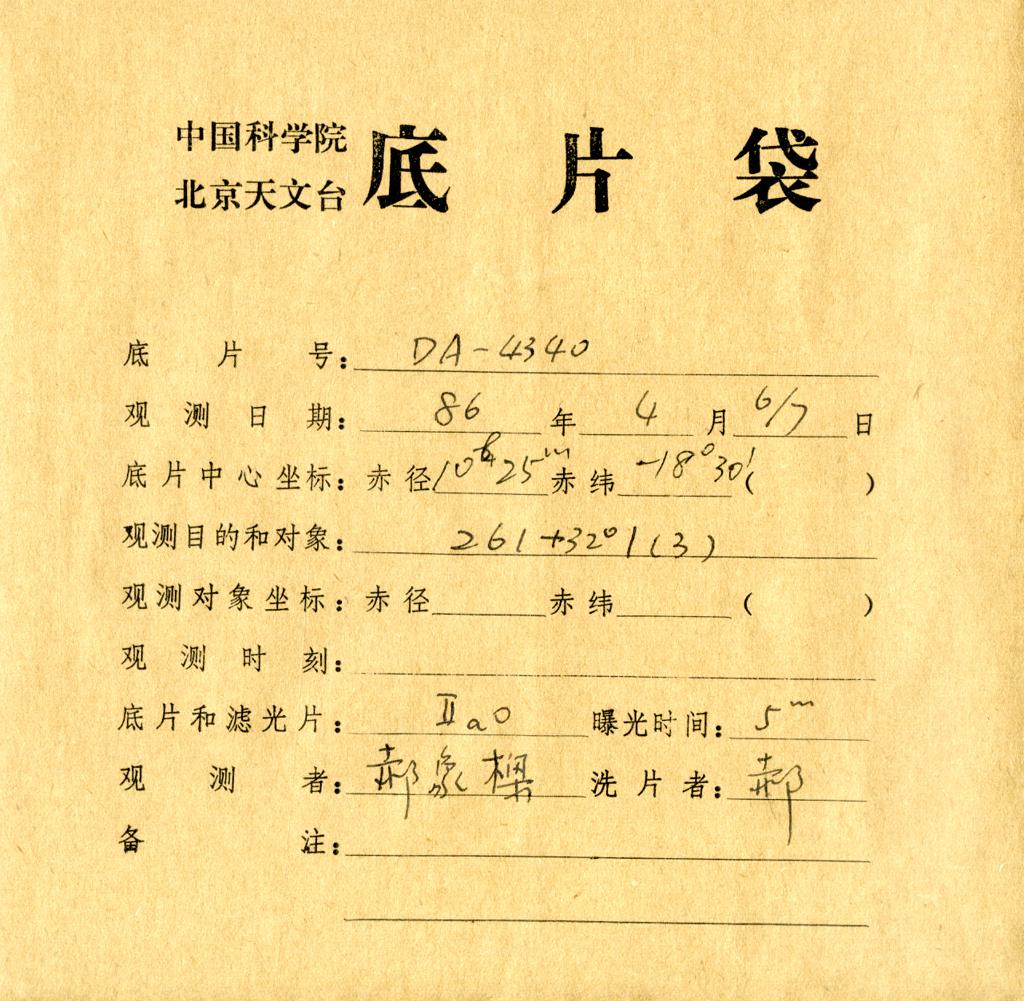 中国科学院
北京天文台
底片袋
底片号：DA-4340
观测日期：86年4月6/7日
底片中心坐标：赤径10h25m赤纬-18°30′(　　)
观测目的和对象：261+32°1(3)
观测对象坐标：赤径　　赤纬　　(　　)
观测时刻：
底片和滤光片：ⅡaO 曝光时间：5m
观测者：郝象樑 洗片者：郝
备注：